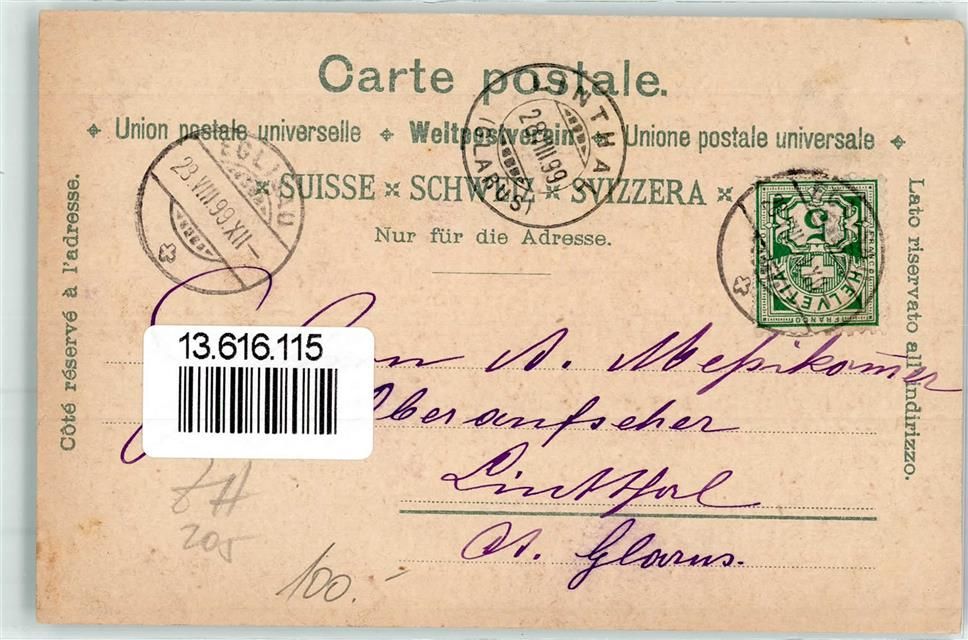 Carte postale.
Union postale universelle Weltpostverein Unione postale universale
SUISSE × SCHWEIZ × SVIZZERA ×
Nur für die Adresse.
Côté réservé à l'adresse.
Lato riservato all'indirizzo.
EGLISAU
23.VIII.99.XII–
LINTHAL
(GLARUS)
23.VIII.99
5
FRANCO
HELVETIA
FRANCO
13.616.115
A. Meßikomer
Oberaufseher
Linthal
Ct. Glarus.
100.-